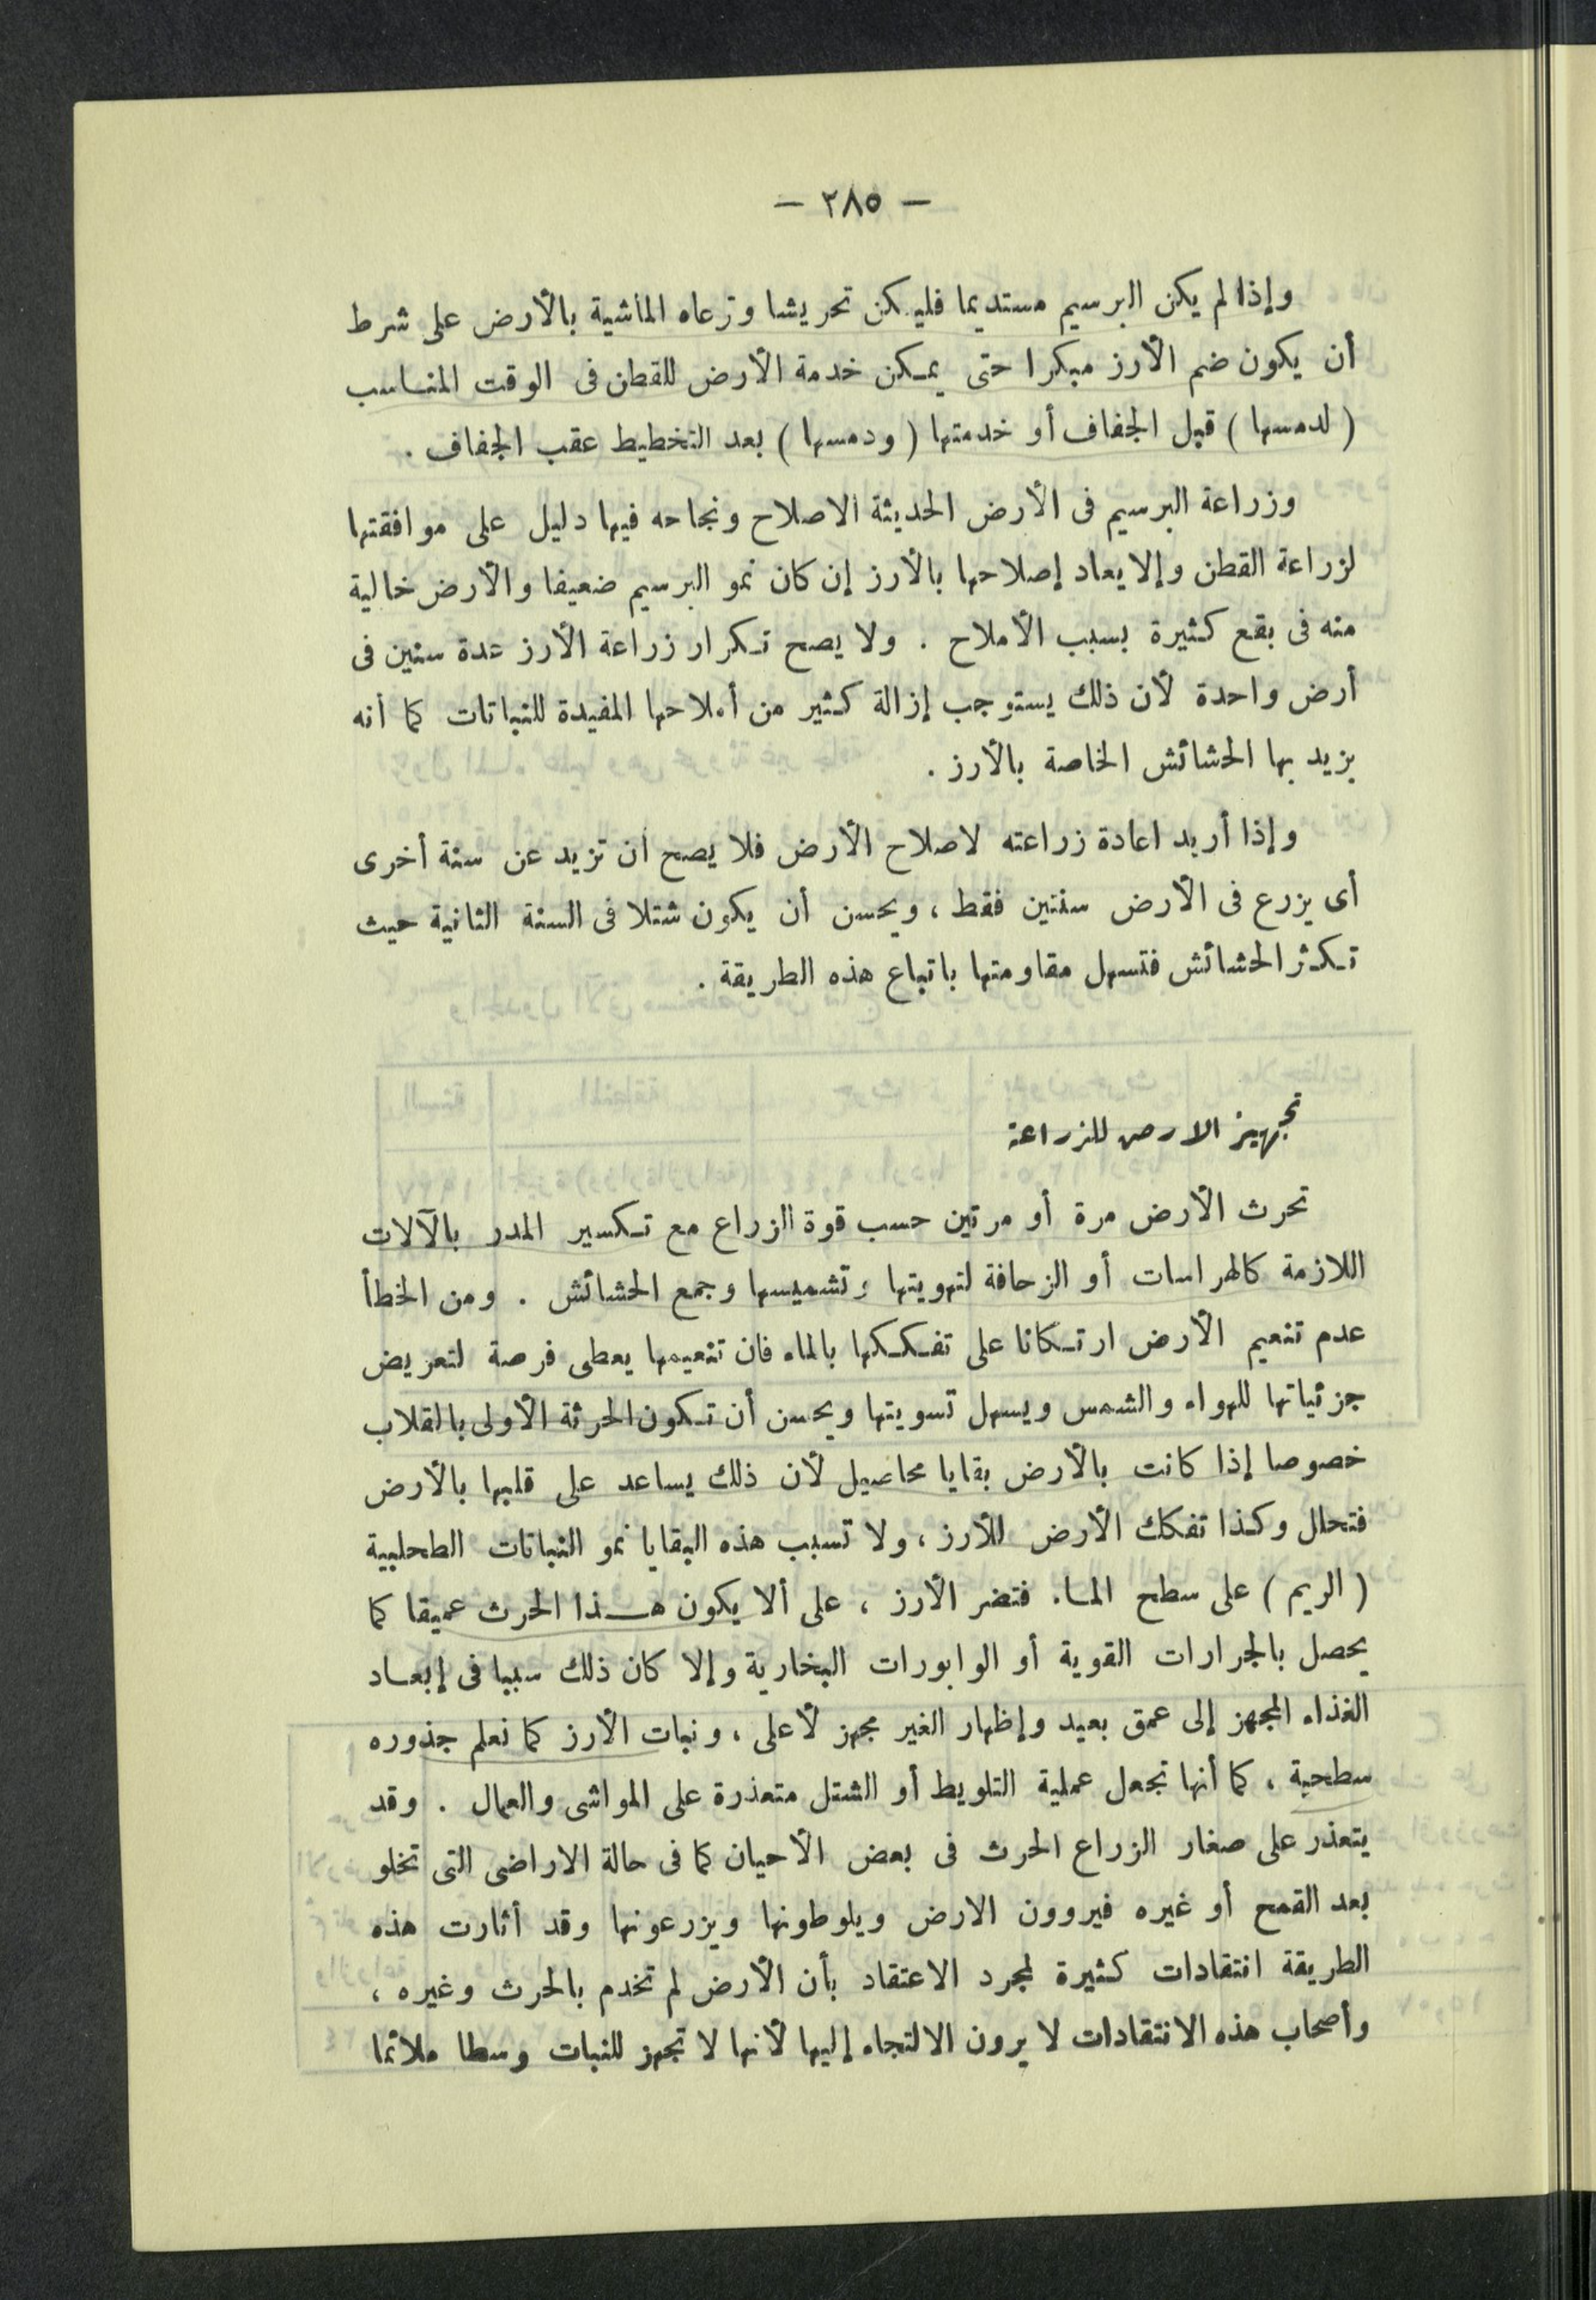 — ٣٨٥ —
وإذا لم يكن البرسيم مستديما فليكن تحريشا وترعاه الماشية بالأرض على شرط
أن يكون ضم الأرز مبكرا حتى يمكن خدمة الأرض للقطن فى الوقت المناسب
( لدمسها ) قبل الجفاف أو خدمتها ( ودمسها ) بعد التخطيط عقب الجفاف .
وزراعة البرسيم فى الأرض الحديثة الاصلاح ونجاحه فيها دليل على موافقتها
لزراعة القطن وإلا يعاد إصلاحها بالأرز إن كان نمو البرسيم ضعيفا والأرض خالية
منه فى بقع كثيرة بسبب الأملاح . ولا يصح تكرار زراعة الأرز عدة سنين فى
أرض واحدة لأن ذلك يستوجب إزالة كثير من أملاحها المفيدة للنباتات كما أنه
يزيد بها الحشائش الخاصة بالأرز .
وإذا أريد اعادة زراعته لاصلاح الأرض فلا يصح أن تزيد عن سنة أخرى
أى يزرع فى الأرض سنتين فقط ، ويحسن أن يكون شتلا فى السنة الثانية حيث
تكثر الحشائش فتسهل مقاومتها باتباع هذه الطريقة .
تجهيز الارض للزراعة
تحرث الأرض مرة أو مرتين حسب قوة الزراع مع تكسير المدر بالآلات
اللازمة كالهراسات أو الزحافة لتهويتها وتشميسها وجمع الحشائش . ومن الخطأ
عدم تنعيم الأرض ارتكانا على تفككها بالماء فان تنعيمها يعطى فرصة لتعريض
جزئياتها للهواء والشمس ويسهل تسويتها ويحسن أن تكون الحرثة الأولى بالقلاب
خصوصا إذا كانت بالأرض بقايا محاصيل لأن ذلك يساعد على قلبها بالأرض
فتحلل وكذا تفكك الأرض للأرز ، ولا تسبب هذه البقايا نمو النباتات الطحلبية
( الريم ) على سطح الماء فتضر الأرز ، على ألا يكون هذا الحرث عميقا كما
يحصل بالجرارات القوية أو الوابورات البخارية وإلا كان ذلك سببا فى إبعاد
الغذاء المجهز إلى عمق بعيد وإظهار الغير مجهز لأعلى ، ونبات الأرز كما نعلم جذوره
سطحية ، كما أنها تجعل عملية التلويط أو الشتل متعذرة على المواشى والعمال . وقد
يتعذر على صغار الزراع الحرث فى بعض الأحيان كما فى حالة الاراضى التى تخلو
بعد القمح أو غيره فيروون الارض ويلوطونها ويزرعونها وقد أثارت هذه
الطريقة انتقادات كثيرة لمجرد الاعتقاد بأن الأرض لم تخدم بالحرث وغيره ،
وأصحاب هذه الانتقادات لا يرون الالتجاء إليها لأنها لا تجهز للنبات وسطا ملائما